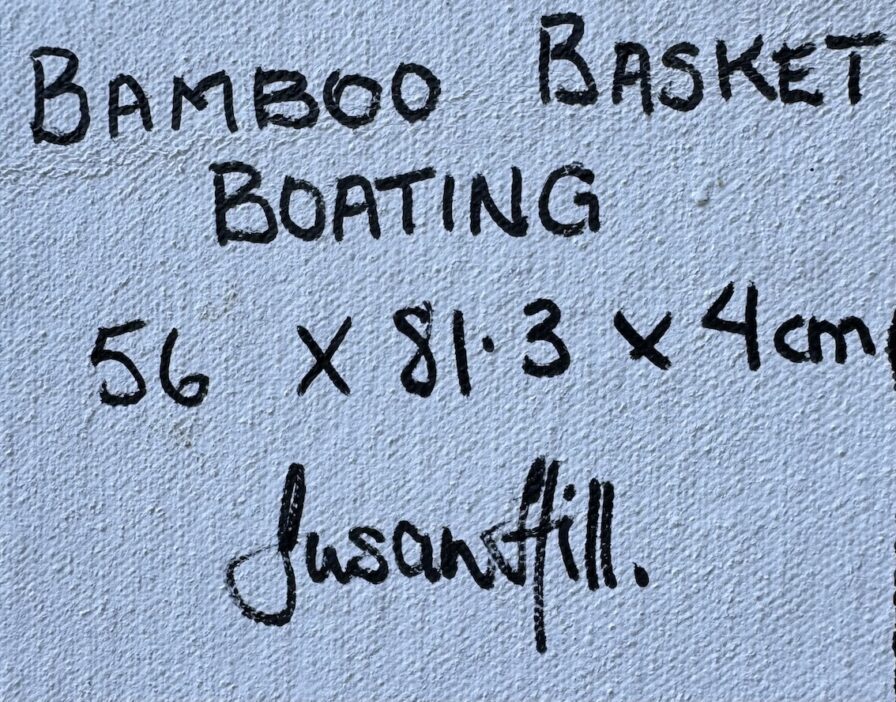 BAMBOO BASKET
BOATING
56 x 81.3 x 4cm
Susan Hill.